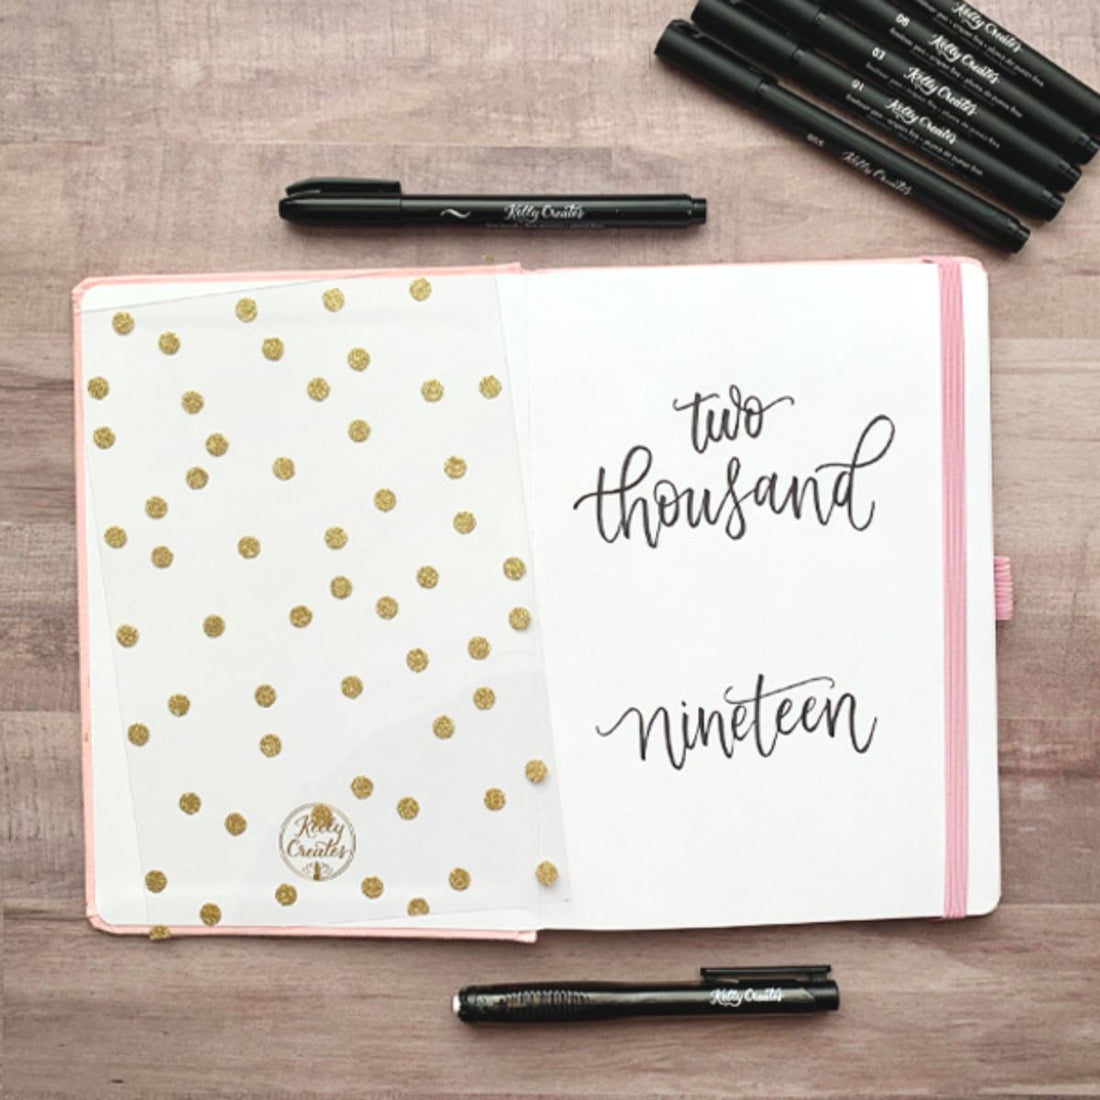 Kelly Creates
06
Kelly Creates
03
Kelly Creates
01
Kelly Creates
Kelly Creates
Kelly Creates
two
thousand
nineteen
Kelly
Creates
Kelly Creates